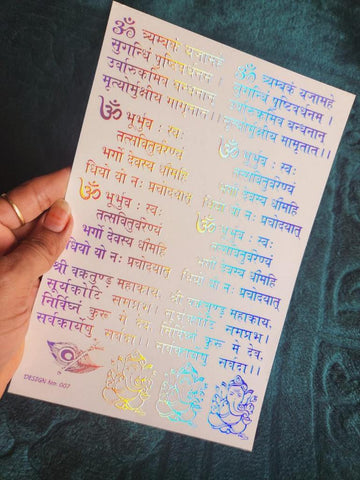 ॐ त्र्यम्बकं यजामहे
सुगन्धिं पुष्टिवर्धनम्।
उर्वारुकमिव बन्धनान्
मृत्योर्मुक्षीय मामृतात।।
ॐ भूर्भुवः स्वः
तत्सवितुर्वरेण्यं
भर्गो देवस्य धीमहि
धियो यो नः प्रचोदयात्
ॐ भूर्भुवः स्वः
तत्सवितुर्वरेण्यं
भर्गो देवस्य धीमहि
धियो यो नः प्रचोदयात्
श्री वक्रतुण्ड महाकाय,
सूर्यकोटि समप्रभ।
निर्विघ्नं कुरु मे देव,
सर्वकार्येषु सर्वदा।।
DESIGN No. 007
ॐ त्र्यम्बकं यजामहे
सुगन्धिं पुष्टिवर्धनम्।
उर्वारुकमिव बन्धनान्
मृत्योर्मुक्षीय मामृतात।।
ॐ भूर्भुवः स्वः
तत्सवितुर्वरेण्यं
भर्गो देवस्य धीमहि
धियो यो नः प्रचोदयात्
ॐ भूर्भुवः स्वः
तत्सवितुर्वरेण्यं
भर्गो देवस्य धीमहि
धियो यो नः प्रचोदयात्
श्री वक्रतुण्ड महाकाय,
समप्रभ।
निर्विघ्नं कुरु मे देव,
सर्वकार्येषु